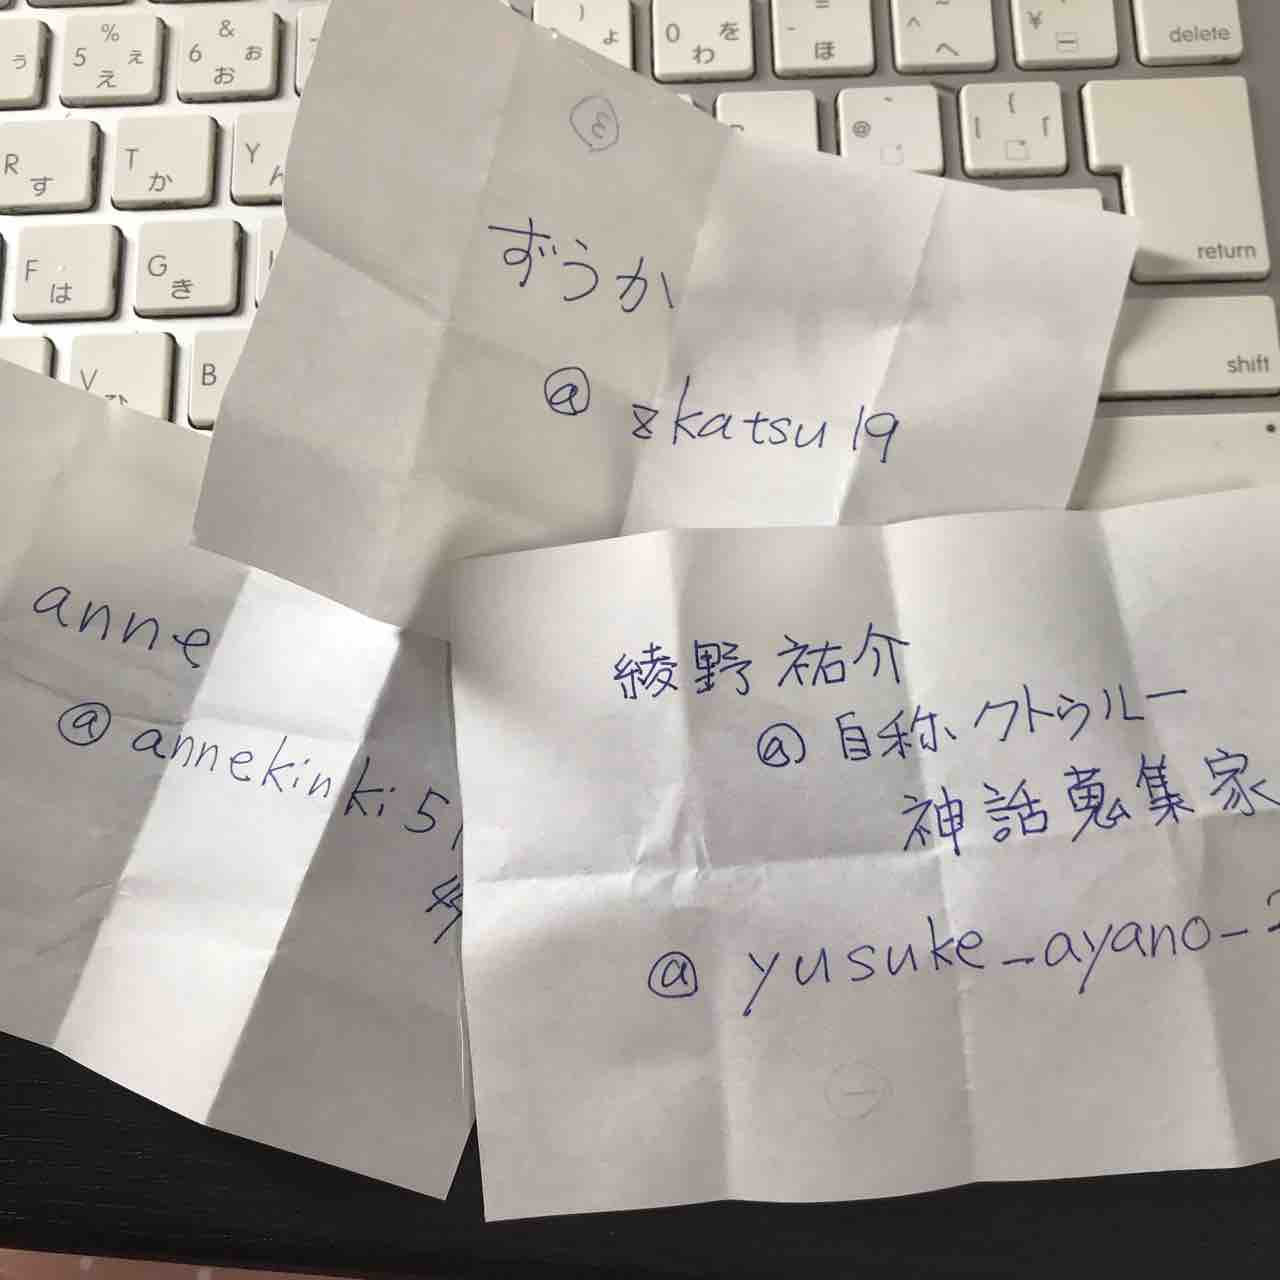 ずうか
@zkatsu19
anne
@annekinki51
綾野 祐介
@自称クトゥルー
神話蒐集家
@yusuke_ayano_2
% ぇ
5 え
& ぉ
6 お
ぅ
) ょ
0 を
わ
= 
- ほ
^ ~
へ
¥ ー
delete
R す
T か
Y
@ `
{
[ 「
return
F は
G き
V ひ
B
shift